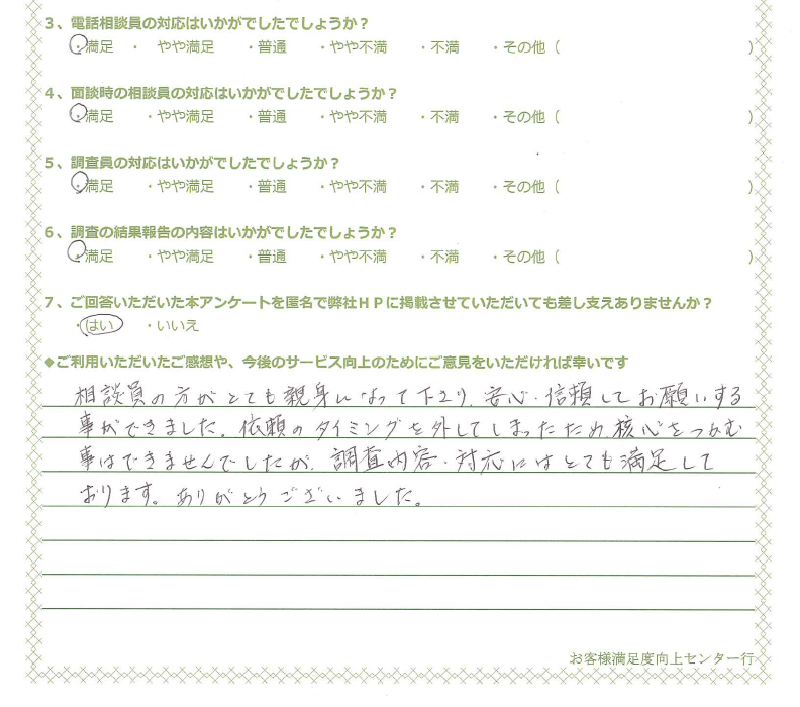 3、電話相談員の対応はいかがでしたでしょうか？
・満足 ・ やや満足 ・普通 ・やや不満 ・不満 ・その他（ ）
4、面談時の相談員の対応はいかがでしたでしょうか？
・満足 ・やや満足 ・普通 ・やや不満 ・不満 ・その他（ ）
5、調査員の対応はいかがでしたでしょうか？
・満足 ・やや満足 ・普通 ・やや不満 ・不満 ・その他（ ）
6、調査の結果報告の内容はいかがでしたでしょうか？
・満足 ・やや満足 ・普通 ・やや不満 ・不満 ・その他（ ）
7、ご回答いただいた本アンケートを匿名で弊社ＨＰに掲載させていただいても差し支えありませんか？
・はい ・いいえ
◆ご利用いただいたご感想や、今後のサービス向上のためにご意見をいただければ幸いです
相談員の方がとても親身になって下さり、安心・信頼してお願いする
事ができました。依頼のタイミングを外してしまったため、核心をつかむ
事はできませんでしたが、調査内容・対応にはとても満足して
おります。ありがとうございました。
お客様満足度向上センター行